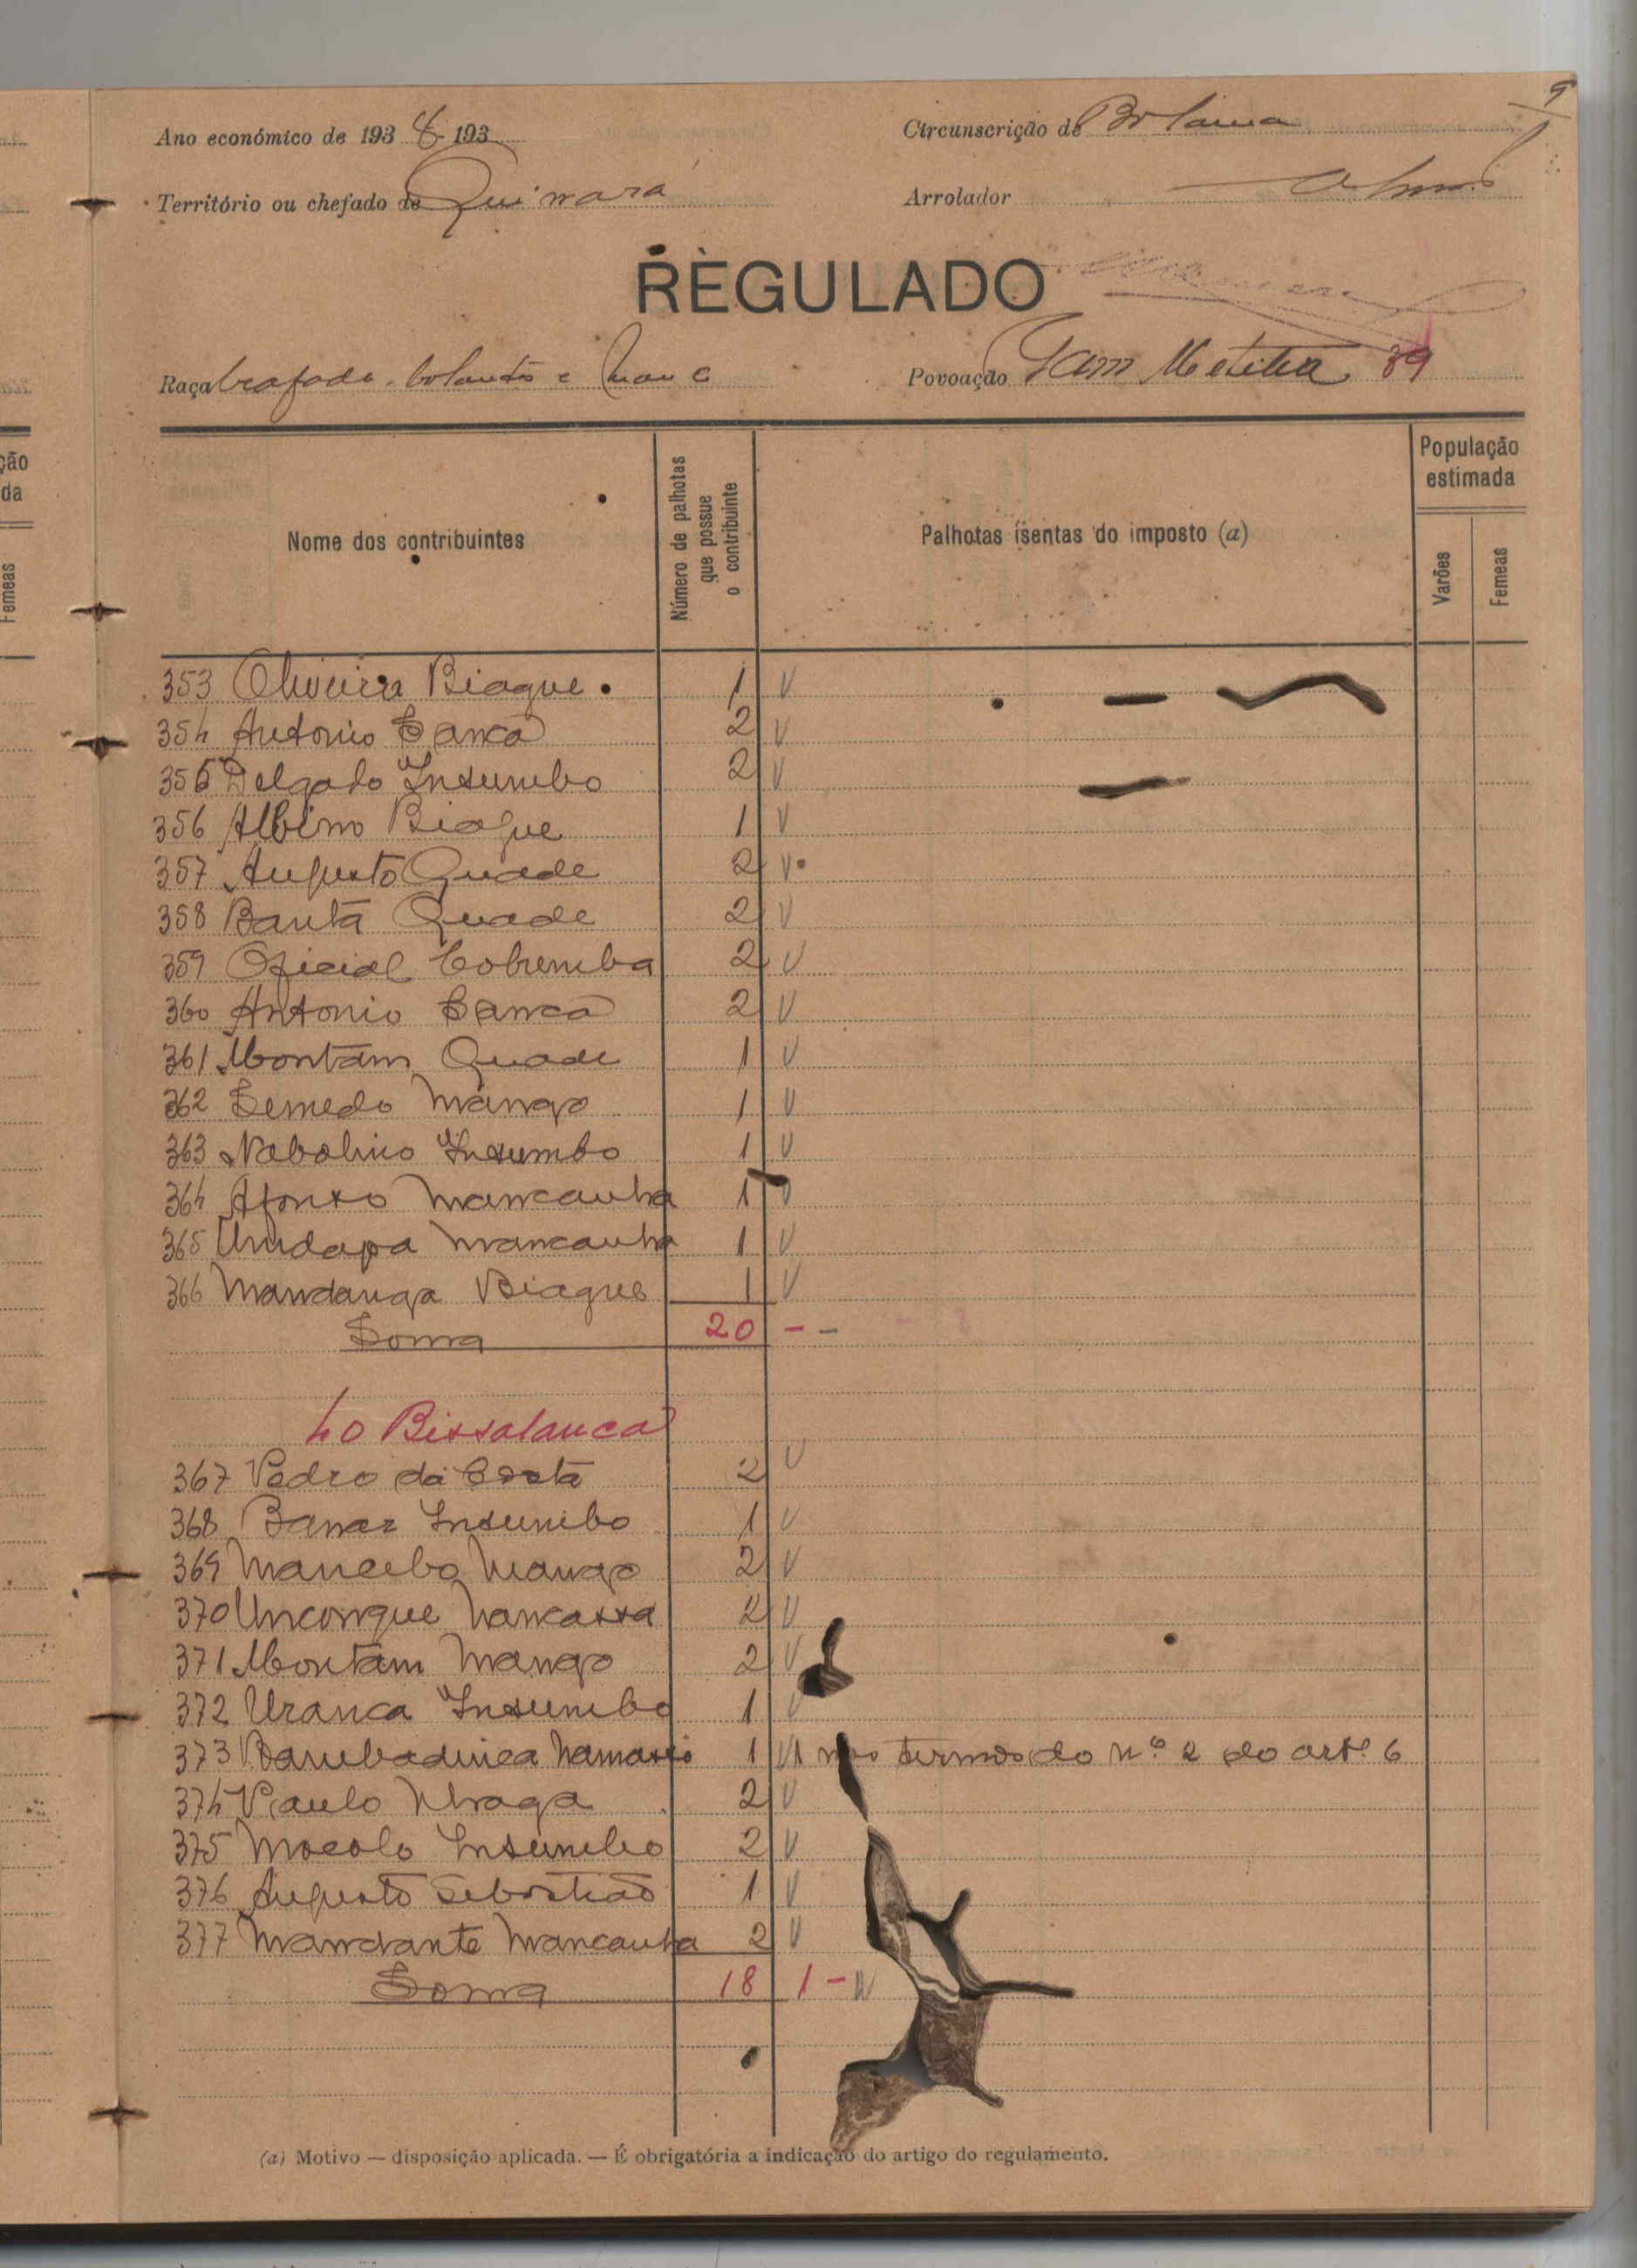 9
Ano económico de 1938-193
Circunscrição de Bolama
Território ou chefado de Quinara
Arrolador
REGULADO
Raça beafada, balanta e manc
Povoação Gam Metilia 39
Nome dos contribuintes
Número de palhotas que possue o contribuinte
Palhotas isentas do imposto (a)
População estimada
Varões
Femeas
353 Oliveira Biague 1 V
354 Antonio Sanca 2 V
355 Delgado Insumbo 2 V
356 Albino Biague 1 V
357 Augusto Quade 2 V
358 Banta Quade 2 V
359 Oficial Cobumba 2 V
360 Antonio Sanca 2 V
361 Montam Quade 1 V
362 Semedo Mango 1 V
363 Nabolico Insumbo 1 V
364 Afonso Mancanha 1 V
365 Undapa Mancanha 1 V
366 Mandanga Biague 1 V
Soma 20 - -
40 Bissalanca
367 Pedro da Costa 2 V
368 Banar Insumbo 1 V
369 Mancebo Mango 2 V
370 Unconque Nancassa 2 V
371 Montam Mango 2 V
372 Uranca Insumbo 1 V
373 Bambadinca Namassó 1 V 1 nos termos do nº 2 do artº 6
374 Paulo Nhaga 2 V
375 Mocolo Insumbo 2 V
376 Augusto Sebastião 1 V
377 Mandante Mancanha 2 V
Soma 18 1 -
(a) Motivo — disposição aplicada. — É obrigatória a indicação do artigo do regulamento.
ção
da
Femeas